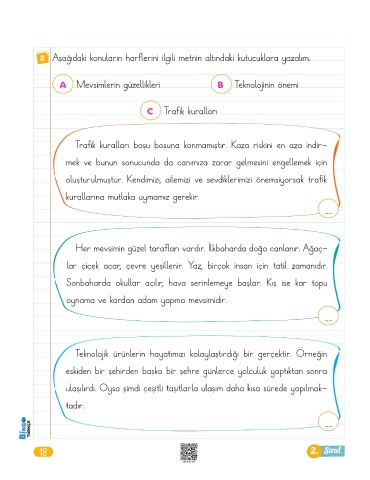 2 Aşağıdaki konuların harflerini ilgili metnin altındaki kutucuklara yazalım.
A Mevsimlerin güzellikleri B Teknolojinin önemi
C Trafik kuralları
Trafik kuralları boşu boşuna konmamıştır. Kaza riskini en aza indir-
mek ve bunun sonucunda da canımıza zarar gelmesini engellemek için
oluşturulmuştur. Kendimizi, ailemizi ve sevdiklerimizi önemsiyorsak trafik
kurallarına mutlaka uymamız gerekir.
Her mevsimin güzel tarafları vardır. İlkbaharda doğa canlanır. Ağaç-
lar çiçek açar, çevre yeşillenir. Yaz, birçok insan için tatil zamanıdır.
Sonbaharda okullar açılır; hava serinlemeye başlar. Kış ise kar topu
oynama ve kardan adam yapma mevsimidir.
Teknolojik ürünlerin hayatımızı kolaylaştırdığı bir gerçektir. Örneğin
eskiden bir şehirden başka bir şehre günlerce yolculuk yaptıktan sonra
ulaşılırdı. Oysa şimdi çeşitli taşıtlarla ulaşım daha kısa sürede yapılmak-
tadır.
BiNGO
TÜRKÇE
18
2. Sınıf